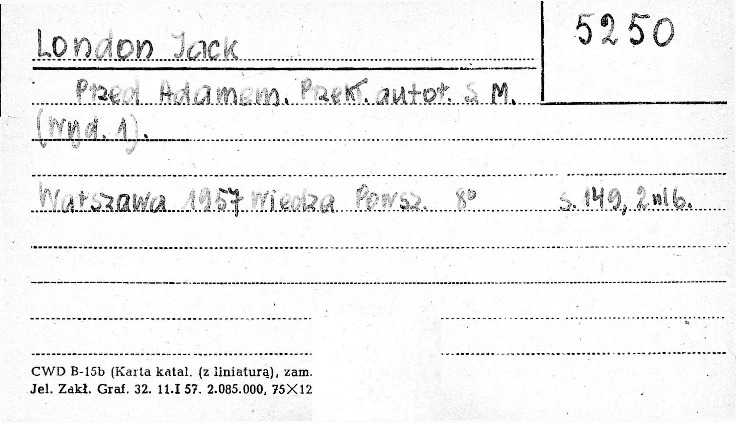 London Jack
5250
Przed Adamem. Przekł. autor. S. M.
(Wyd. 1).
Warszawa 1957 Wiedza Powsz. 8° s. 149, 2 nlb.
CWD B-15b (Karta katal. (z liniaturą), zam.
Jel. Zakł. Graf. 32. 11.I 57. 2.085.000, 75×12